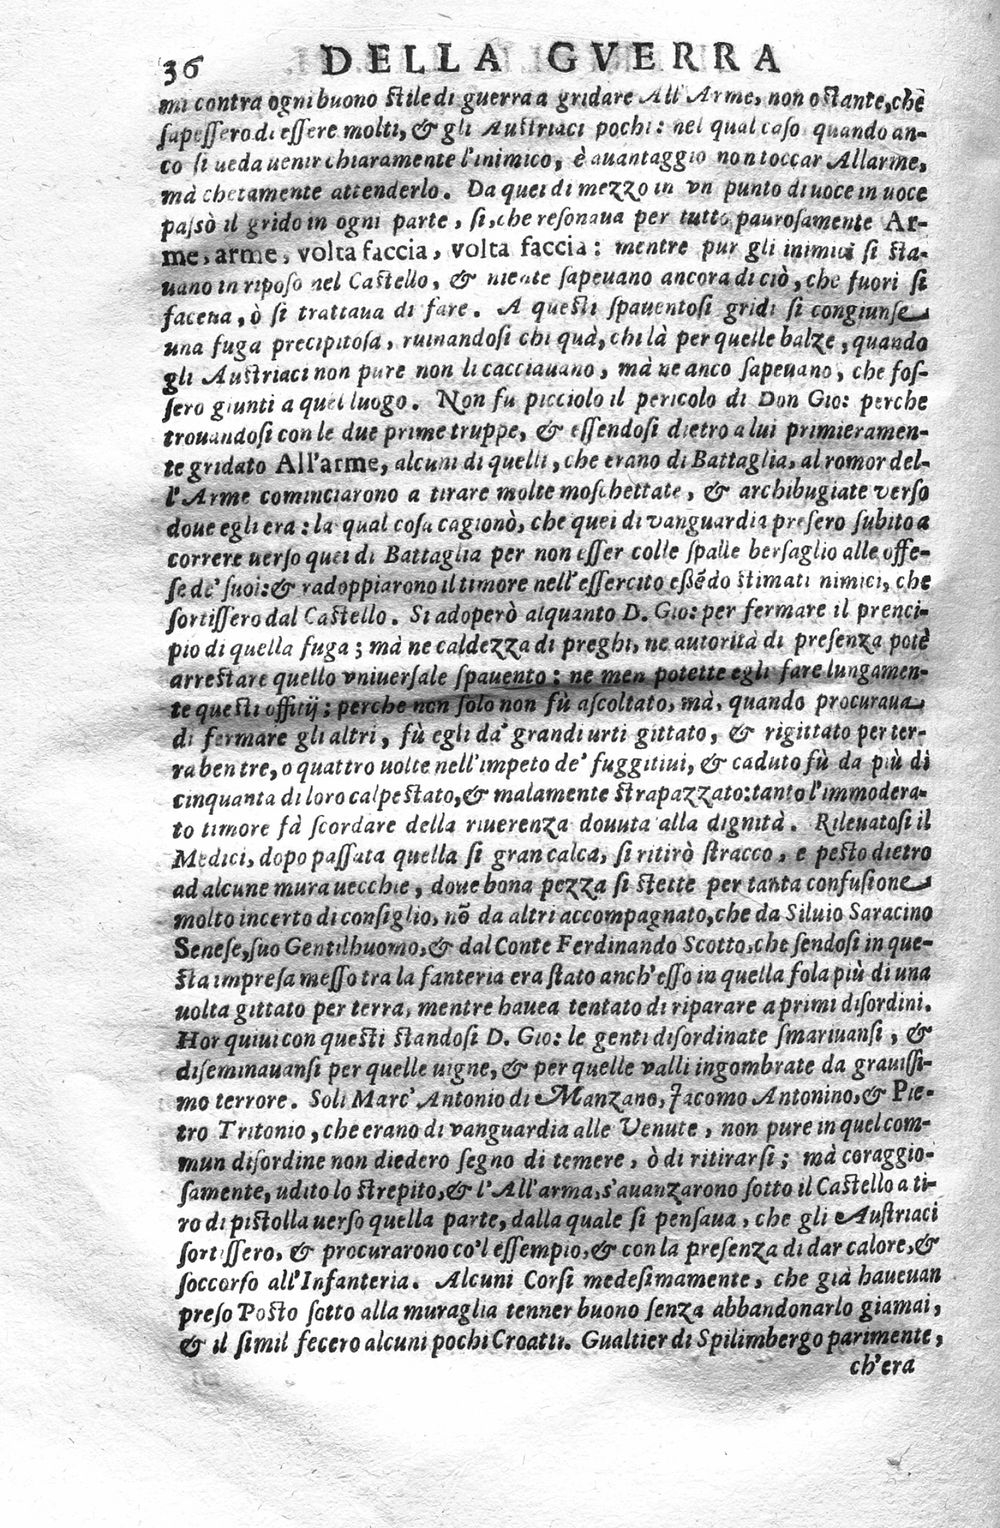 36 DELLA GVERRA
mi contra ogni buono stile di guerra a gridare All'Arme, non ostante, chè
sapessero di essere molti, & gli Austriaci pochi: nel qual caso quando an-
co si ueda uenir chiaramente l'inimico, è auantaggio non toccar Allarme,
mà chetamente attenderlo. Da quei di mezzo in vn punto di uoce in uoce
passò il grido in ogni parte, si, che resonaua per tutto paurosamente Ar-
me, arme, volta faccia, volta faccia: mentre pur gli inimici si sta-
uano in riposo nel Castello, & niente sapeuano ancora di ciò, che fuori si
facena, ò si trattaua di fare. A questi spauentosi gridi si congiunse
una fuga precipitosa, ruinandosi chi quà, chi là per quelle balze, quando
gli Austriaci non pure non li cacciauano, mà ne anco sapeuano, che fos-
sero giunti a quel luogo. Non fu picciolo il pericolo di Don Gio: perche
trouandosi con le due prime truppe, & essendosi dietro a lui primieramen-
te gridato All'arme, alcuni di quelli, che erano di Battaglia, al romor del-
l'Arme cominciarono a tirare molte moschettate, & archibugiate verso
doue egli era: la qual cosa cagionò, che quei di vanguardia presero subito a
correre uerso quei di Battaglia per non esser colle spalle bersaglio alle offe-
se de' suoi: & radoppiarono il timore nell'essercito eßẽdo stimati nimici, che
sortissero dal Castello. Si adoperò alquanto D. Gio: per fermare il prenci-
pio di quella fuga; mà ne caldezza di preghi, ne autorità di presenza potè
arrestare quello vniuersale spauento: ne men potette egli fare lungamen-
te questi offitij; perche non solo non fù ascoltato, mà, quando procuraua
di fermare gli altri, fù egli da' grandi urti gittato, & rigittato per ter-
ra ben tre, o quattro uolte nell'impeto de' fuggitiui, & caduto fù da più di
cinquanta di loro calpestato, & malamente strapazzato: tanto l'immodera-
to timore fà scordare della riuerenza douuta alla dignità. Rileuatosi il
Medici, dopo passata quella si gran calca, si ritirò stracco, e pesto dietro
ad alcune mura uecchie, doue bona pezza si stette per tanta confusione
molto incerto di consiglio, nõ da altri accompagnato, che da Siluio Saracino
Senese, suo Gentilhuomo, & dal Conte Ferdinando Scotto, che sendosi in que-
sta impresa messo tra la fanteria era stato anch'esso in quella fola più di una
uolta gittato per terra, mentre hauea tentato di riparare a primi disordini.
Hor quiui con questi standosi D. Gio: le genti disordinate smariuansi, &
diseminauansi per quelle uigne, & per quelle valli ingombrate da grauissi-
mo terrore. Soli Marc'Antonio di Manzano, Jacomo Antonino, & Pie-
tro Tritonio, che erano di vanguardia alle Venute, non pure in quel com-
mun disordine non diedero segno di temere, ò di ritirarsi; mà coraggio-
samente, udito lo strepito, & l'All'arma, s'auanzarono sotto il Castello a ti-
ro di pistolla uerso quella parte, dalla quale si pensaua, che gli Austriaci
sortissero, & procurarono co'l essempio, & con la presenza di dar calore, &
soccorso all'Infanteria. Alcuni Corsi medesimamente, che già haueuan
preso Posto sotto alla muraglia tenner buono senza abbandonarlo giamai,
& il simil fecero alcuni pochi Croatti. Gualtier di Spilimbergo parimente,
ch'era